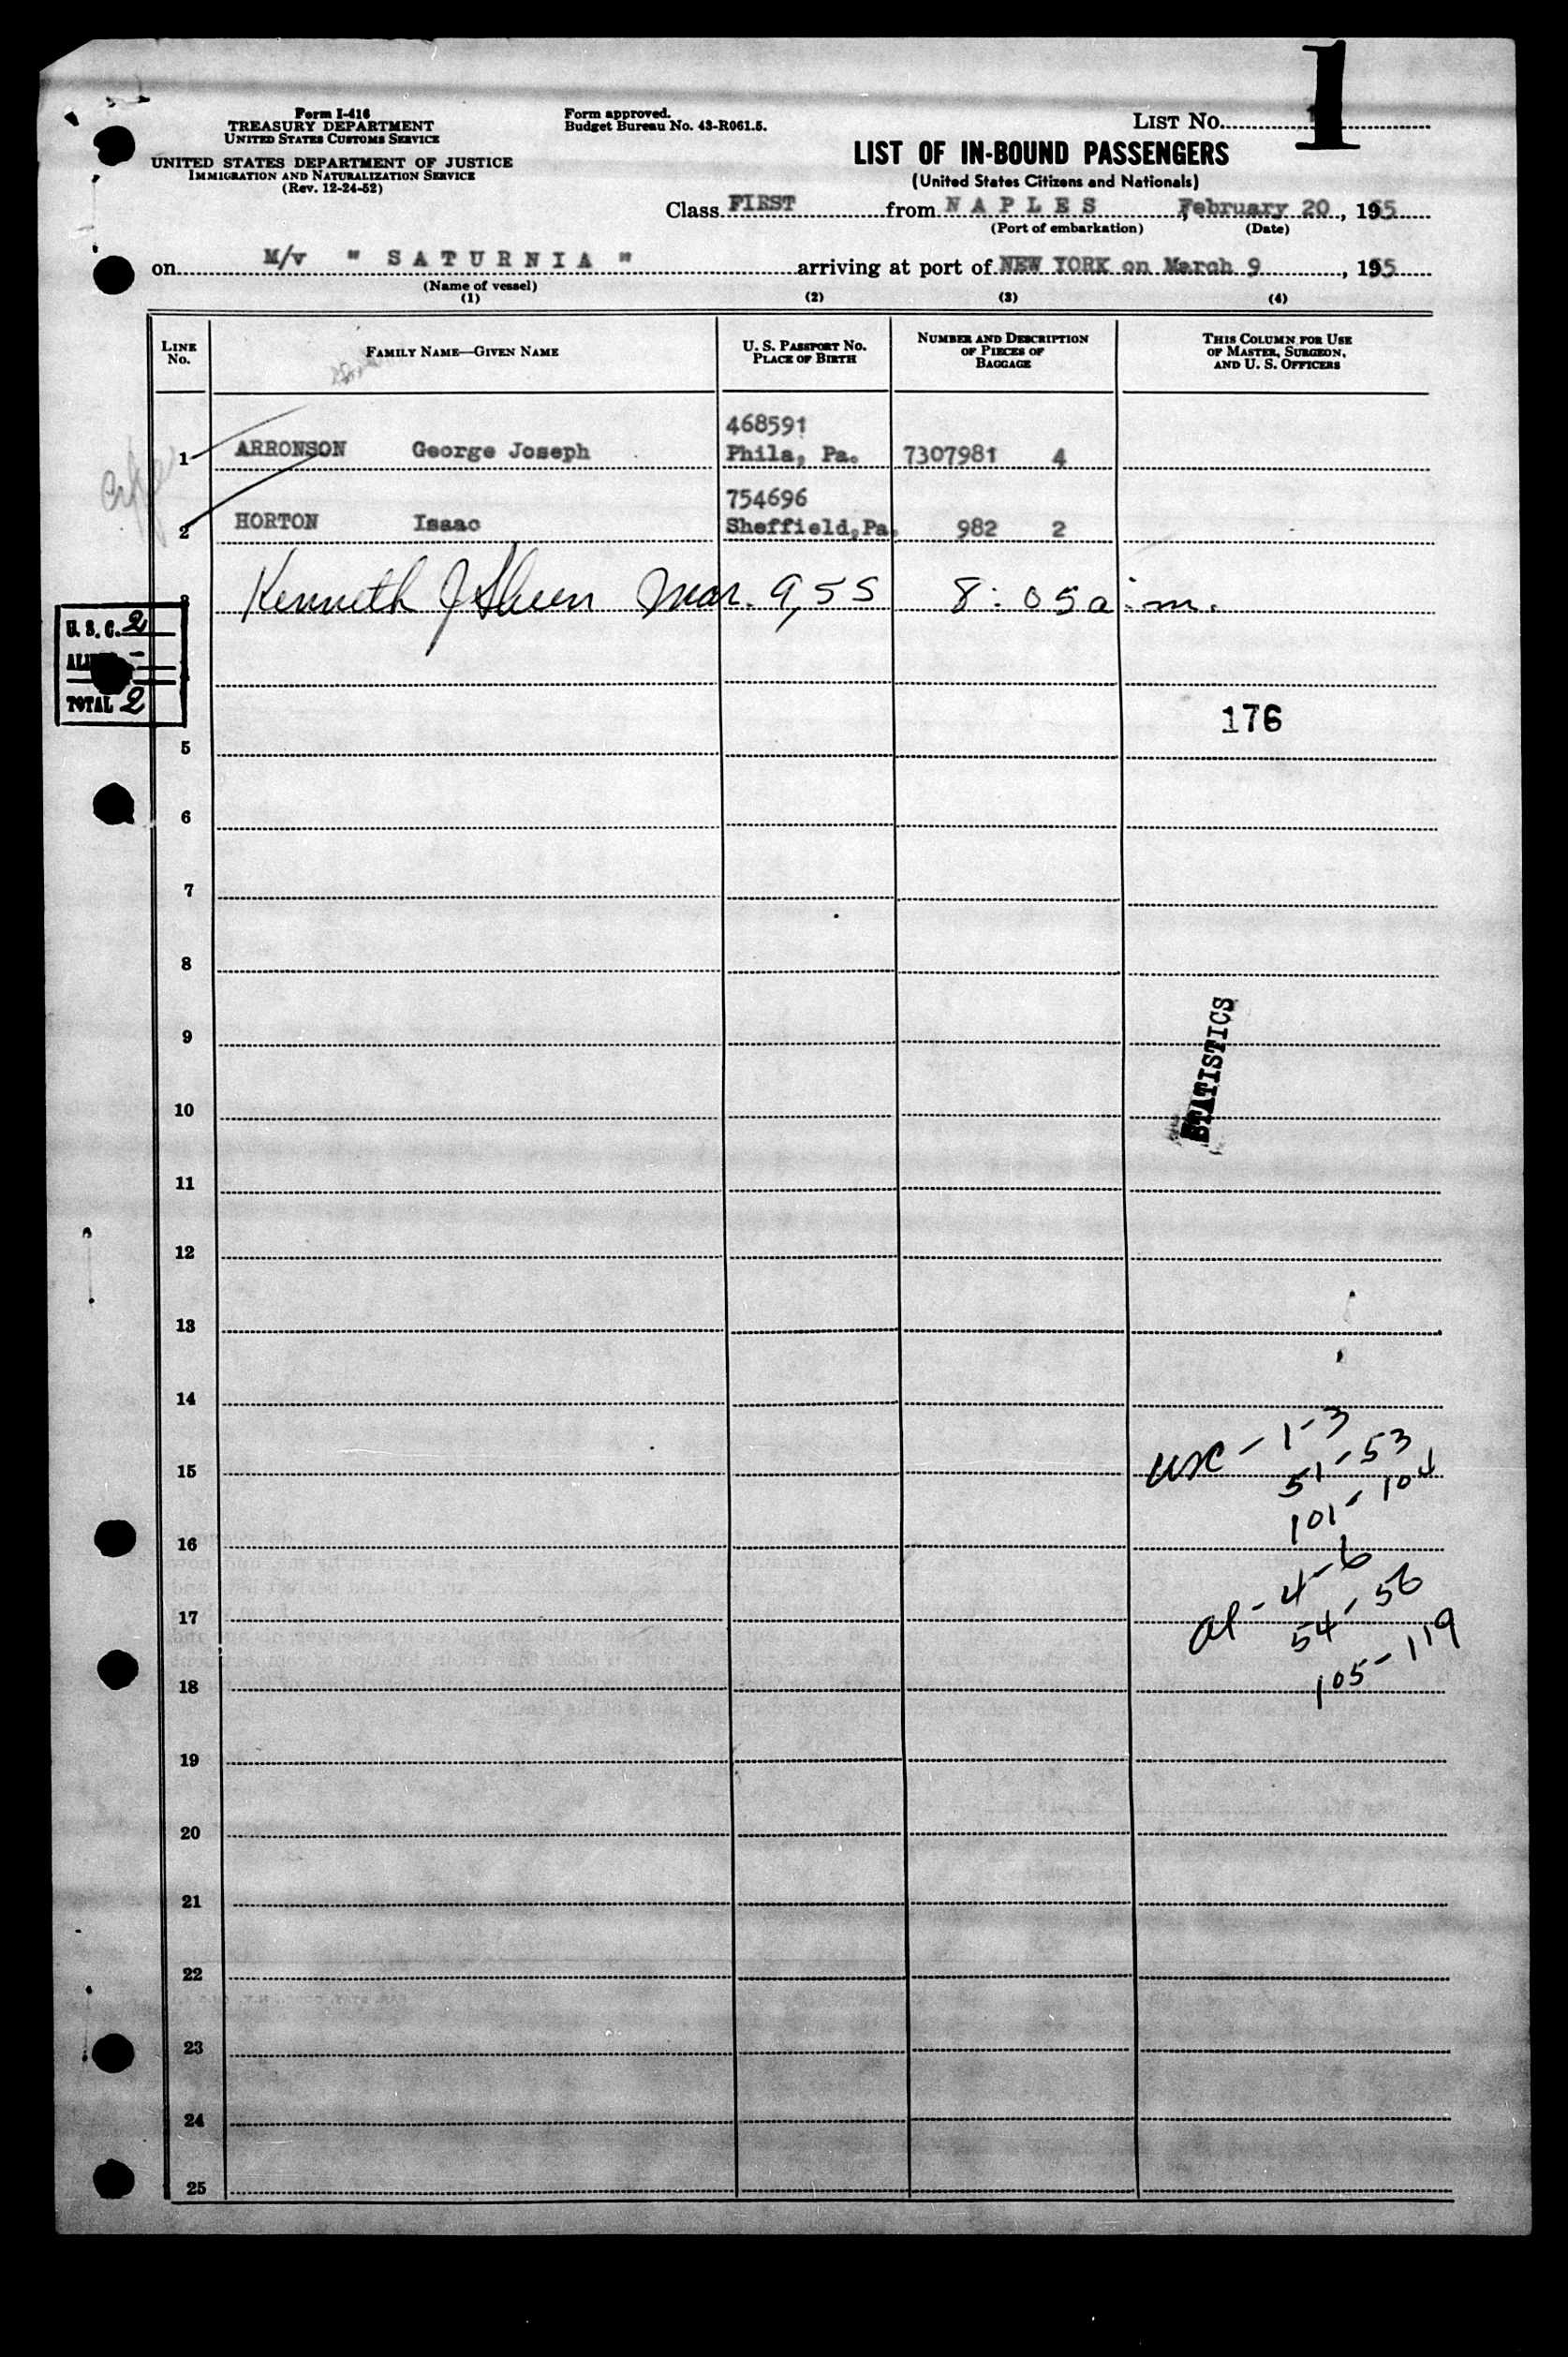 1
Form I-416
TREASURY DEPARTMENT
UNITED STATES CUSTOMS SERVICE
UNITED STATES DEPARTMENT OF JUSTICE
IMMIGRATION AND NATURALIZATION SERVICE
(Rev. 12-24-52)
Form approved.
Budget Bureau No. 43-R061.5.
LIST No.
LIST OF IN-BOUND PASSENGERS
(United States Citizens and Nationals)
Class FIRST from NAPLES, February 20, 1955
(Port of embarkation) (Date)
on M/v " SATURNIA " arriving at port of NEW YORK on March 9, 1955
(Name of vessel)
(1) (2) (3) (4)
LINE No. FAMILY NAME—GIVEN NAME U. S. PASSPORT No. PLACE OF BIRTH NUMBER AND DESCRIPTION OF PIECES OF BAGGAGE THIS COLUMN FOR USE OF MASTER, SURGEON, AND U. S. OFFICERS
468591
1 ARRONSON George Joseph Phila, Pa. 7307981 4
754696
2 HORTON Isaac Sheffield, Pa. 982 2
3 Kenneth J Mar. 9, 55 8:05 a.m.
U. S. C. 2
-
TOTAL 2
176
5
6
7
8
9
STATISTICS
10
11
12
13
14
usc - 1-3
15
51-53
101-104
16
al - 4-6
17
54-56
105-119
18
19
20
21
22
23
24
25